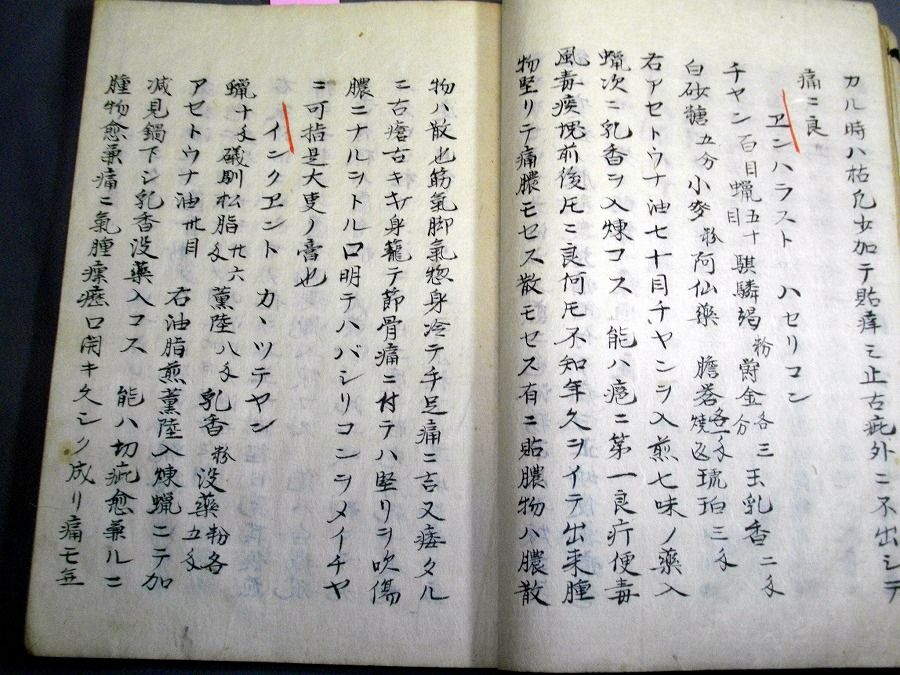 カル時ハ枯凡少加テ貼痒ミ止古疵外ニ不出シテ
痛ニ良
ヱンハラスト ハセリコン
チヤン百目蝋五十目騏驎竭粉欝金各三分玉乳香二匁
白砂糖五分小麦粉阿仙薬 膽礬焼各一匁返琥珀三匁
右アセトウナ油七十目チヤンヲ入煎七味ノ藥入
蝋次ニ乳香ヲ入煉コス 能ハ疱ニ第一良疔便毒
風毒疾塊前後圧ニ良何圧不知年久ヲイテ出来腫
物堅リテ痛膿モセス散モセス有ニ貼膿物ハ膿散
物ハ散也筋氣脚氣惣身冷テ手足痛ニ吉又痿タル
ニ古瘡古キキズ身籠テ節骨痛ニ付テハ堅リヲ吹傷
膿ニナルヲトルロ明テハバシリコンヲメイチヤ
ニ可指是大叓ノ膏也
インクヱント カヽツテヤン
蝋十匁礒剛松脂廿六匁薫陸八匁乳香粉没藥粉各五匁
アセトウナ油卅目 右油脂煎薫陸入煉蝋ニテ加
減見鍋下シ乳香没藥入コス 能ハ切疵愈兼ルニ
腫物愈兼痛ニ氣腫瘰癧口開キ久シク成リ痛モ並